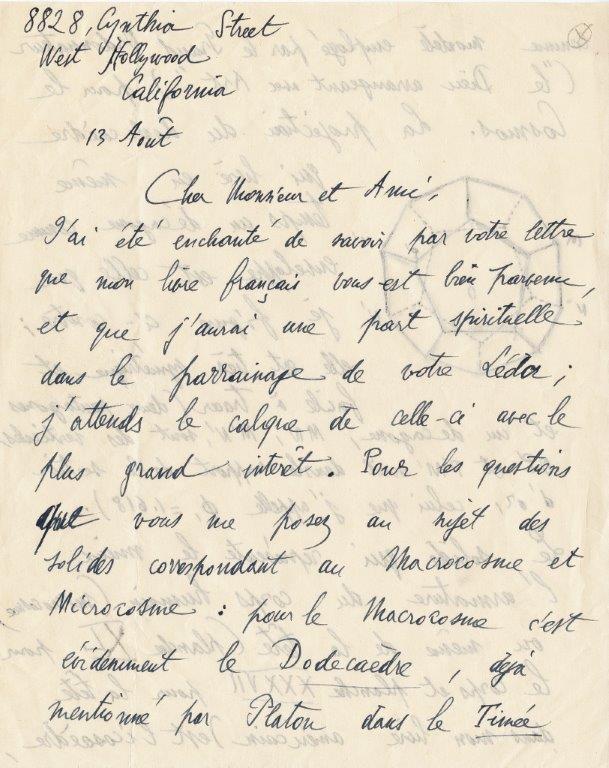 8828, Cynthia Street
West Hollywood
California
13 Août
Cher Monsieur et Ami,
J'ai été enchanté de savoir par votre lettre
que mon livre français vous est bien parvenu,
et que j'aurai une part "spirituelle"
dans le parrainage de votre Léda ;
j'attends le calque de celle-ci avec le
plus grand intérêt. Pour les questions
que vous me posez au sujet des
solides correspondant au Macrocosme et
Microcosme : pour le Macrocosme c'est
évidemment le Dodecaèdre, déja
mentionné par Platon dans le Timée